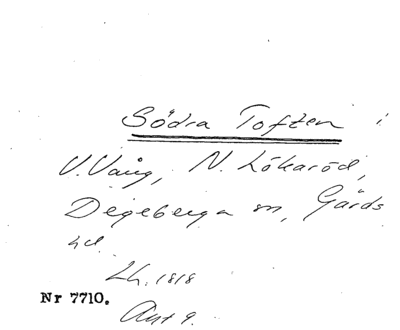 Södra Toften i
V. Vång, N. Lökaröd,
Degeberga sn, Gärds
hd.
Lh. 1818
Nr 7710.
Akt 9.